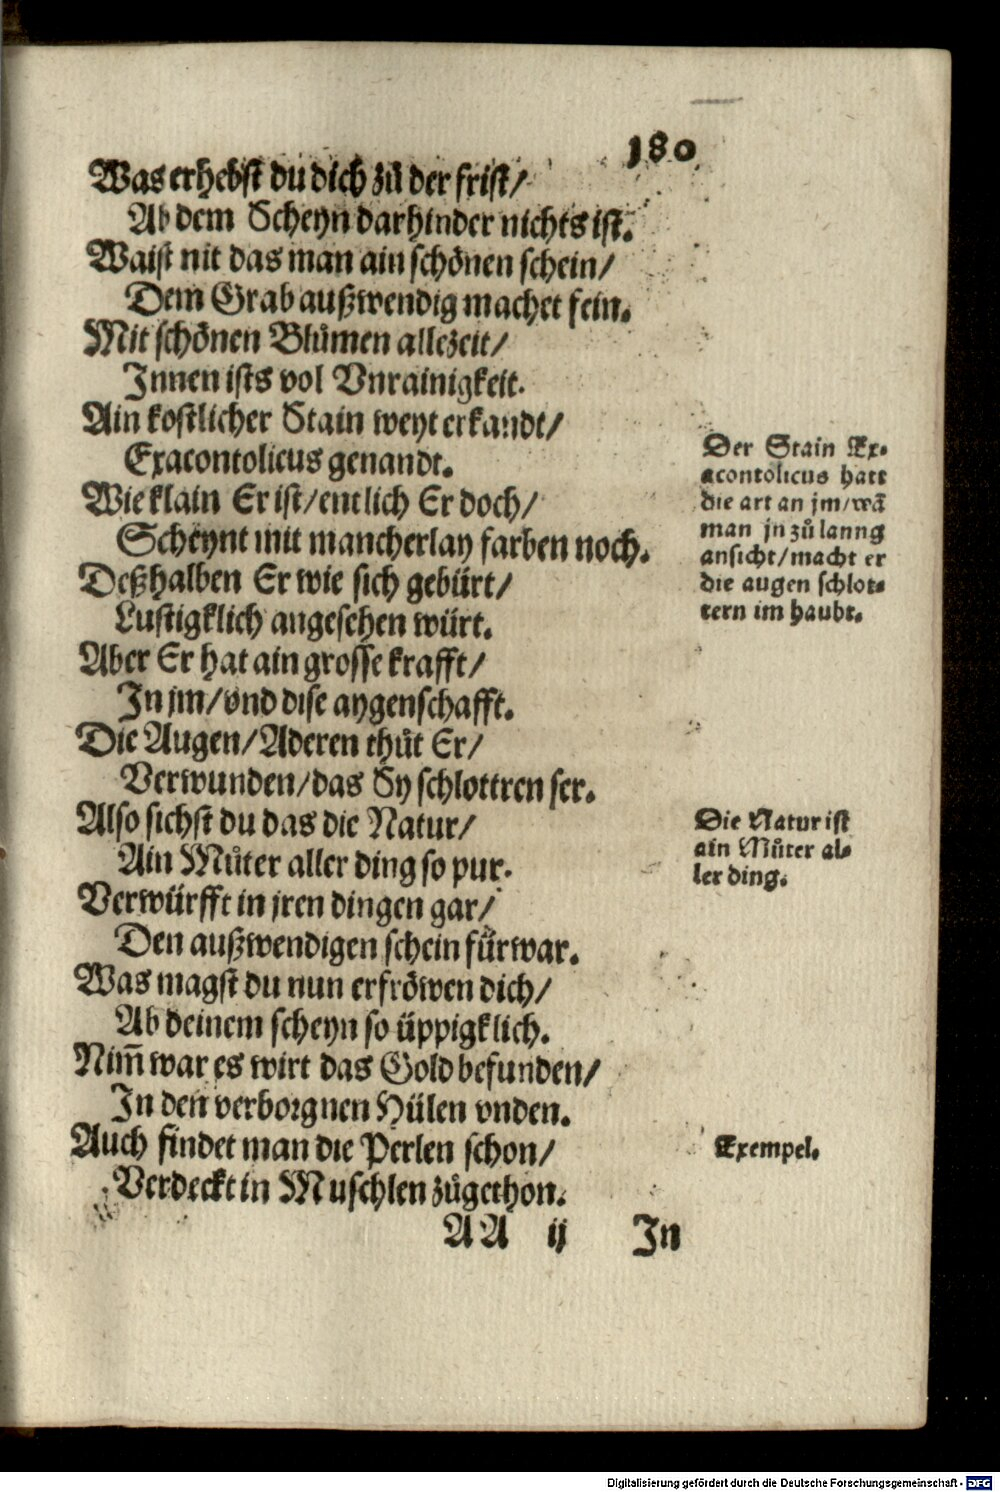 180
Was erhebst du dich zů der frist/
Ab dem Scheyn darhinder nichts ist.
Waist nit das man ain schönen schein/
Dem Grab außwendig machet fein.
Mit schönen Blůmen allezeit/
Innen ists vol Vnrainigkeit.
Ain kostlicher Stain weyt erkandt/
Exacontolicus genandt.
Wie klain Er ist/entlich Er doch/
Scheynt mit mancherlay farben noch.
Deßhalben Er wie sich gebürt/
Lustigklich angesehen würt.
Aber Er hat ain grosse krafft/
In jm/vnd dise aygenschafft.
Die Augen/Aderen thůt Er/
Verwunden/das Sy schlottren ser.
Also sichst du das die Natur/
Ain Můter aller ding so pur.
Verwürfft in jren dingen gar/
Den außwendigen schein fürwar.
Was magst du nun erfröwen dich/
Ab deinem scheyn so üppigklich.
Nim̃ war es wirt das Gold befunden/
In den verborgnen Hülen vnden.
Auch findet man die Perlen schon/
Verdeckt in Muschlen zůgethon.
Der Stain Ex-
acontolicus hatt
die art an jm/wã
man jn zů lanng
ansicht/macht er
die augen schlot-
tern im haubt.
Die Natur ist
ain Můter al-
ler ding.
Exempel.
AA ij In
Digitalisierung gefördert durch die Deutsche Forschungsgemeinschaft - DFG